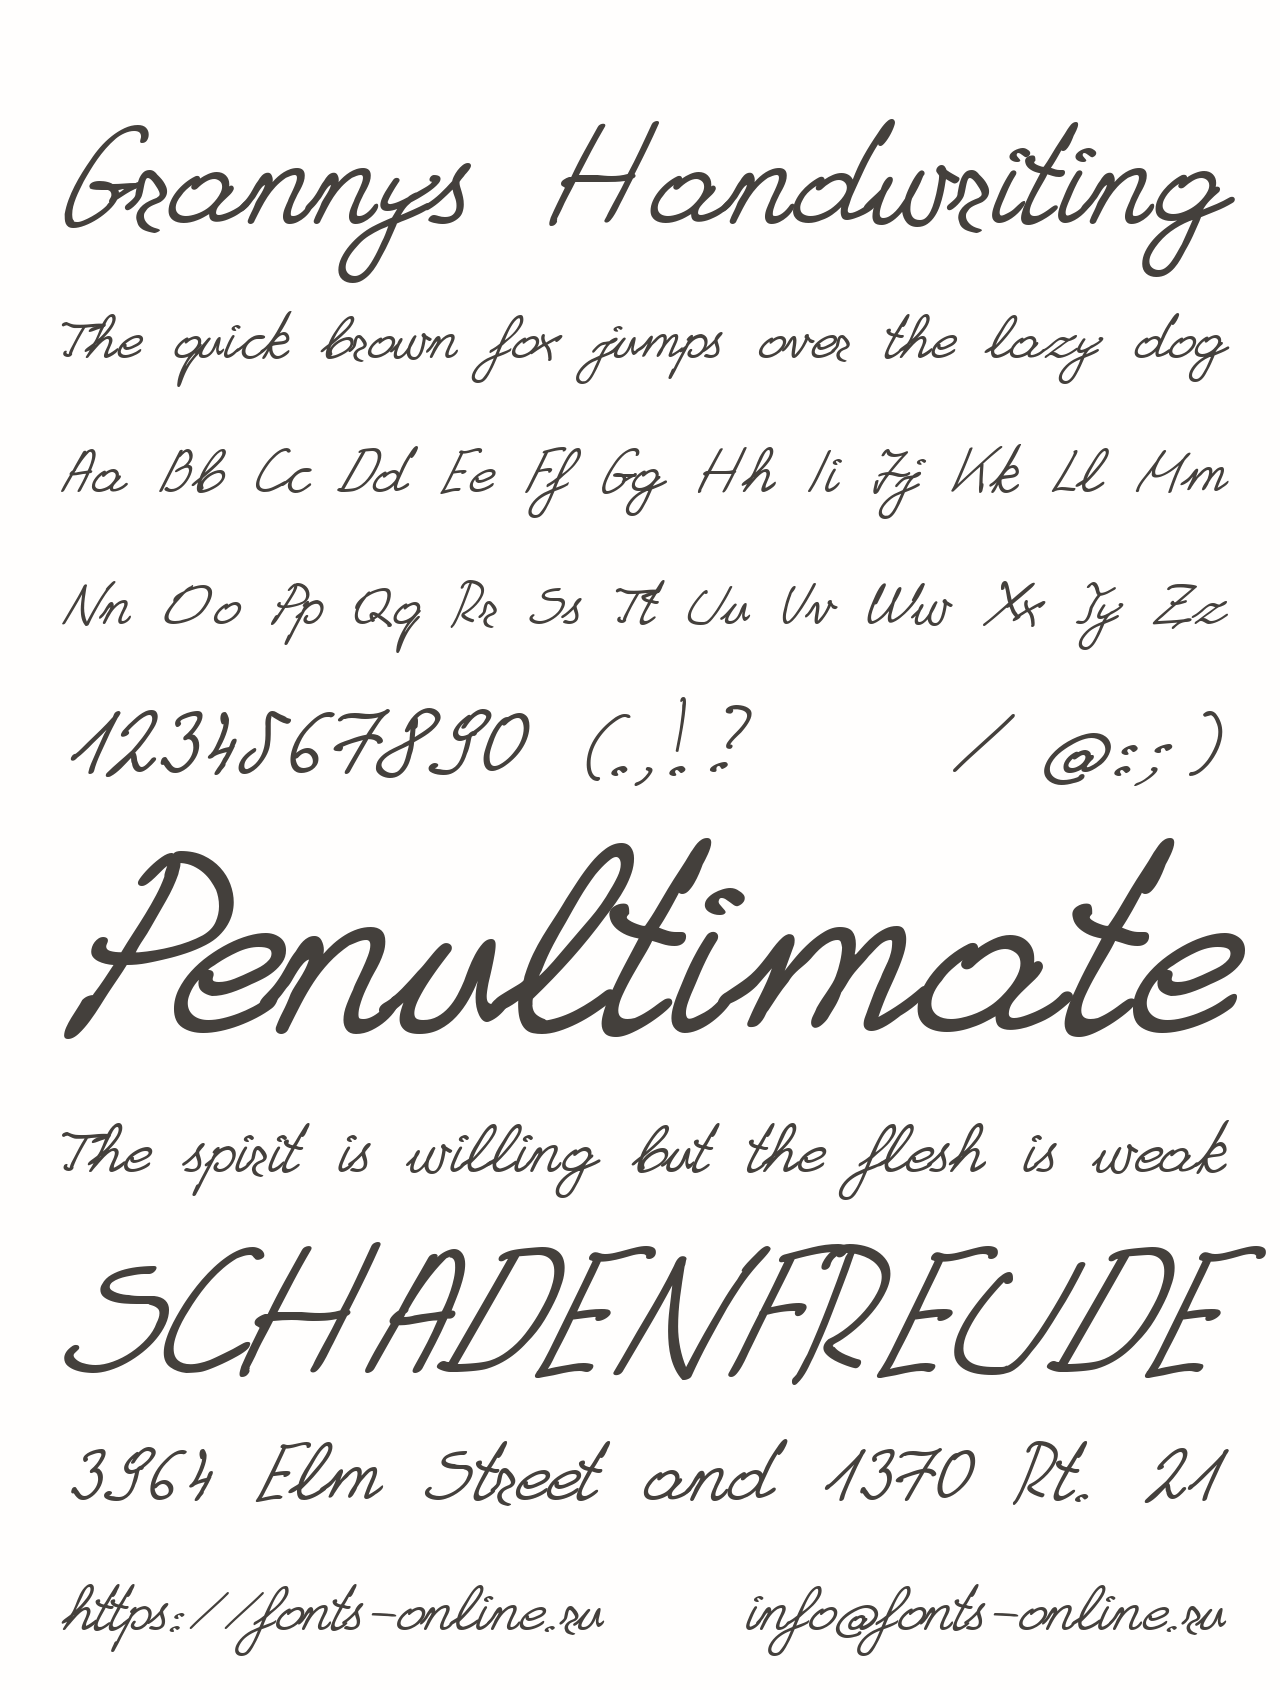 Grannys Handwriting
The quick brown fox jumps over the lazy dog
Aa Bb Cc Dd Ee Ff Gg Hh Ii Jj Kk Ll Mm
Nn Oo Pp Qq Rr Ss Tt Uu Vv Ww Xx Yy Zz
1234567890 (.,!? / @:;)
Penultimate
The spirit is willing but the flesh is weak
SCHADENFREUDE
3964 Elm Street and 1370 Rt. 21
https://fonts-online.ru info@fonts-online.ru